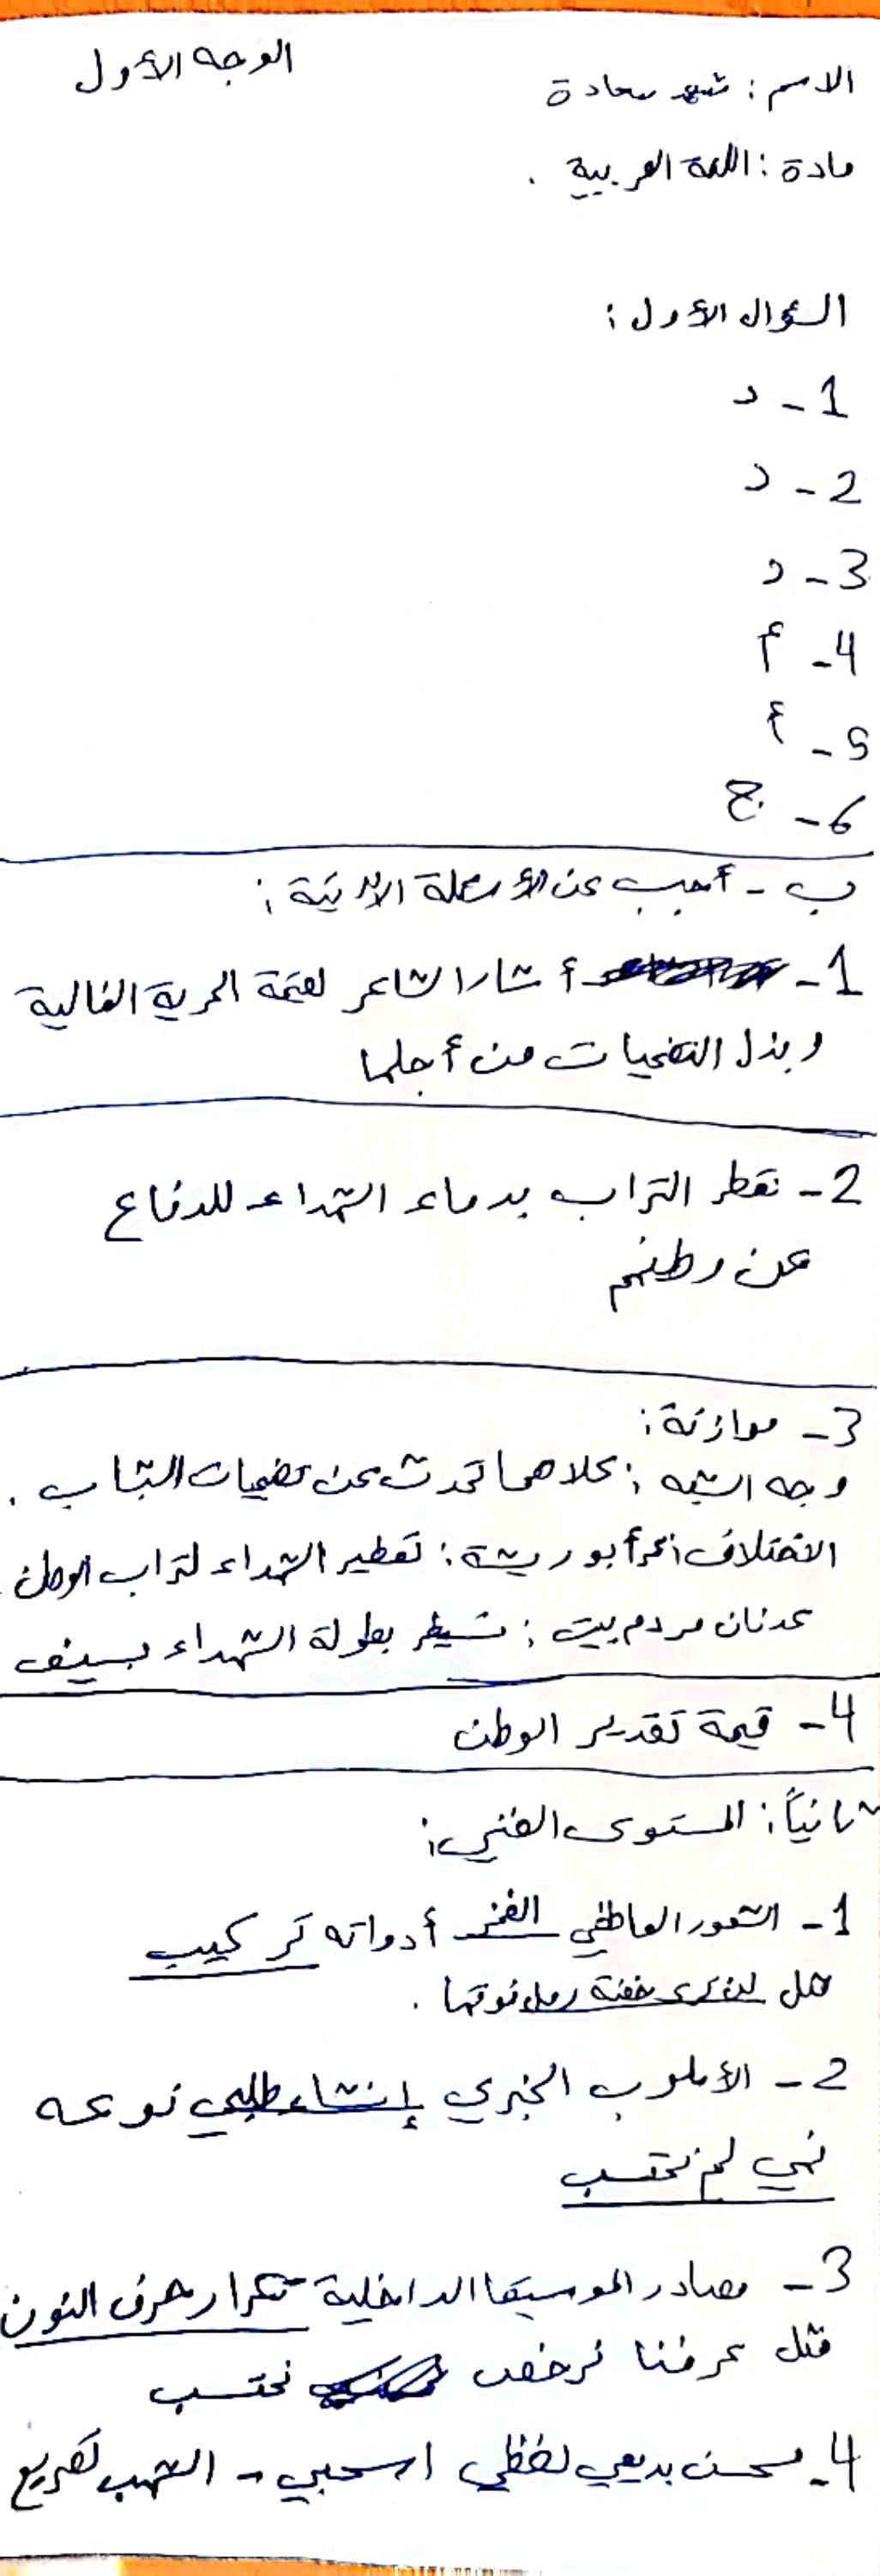 الوجه الأول
الاسم : شهد سعادة
مادة : اللغة العربية .
السؤال الأول :
1 - د
2 - د
3 - د
4 - أ
5 - أ
6 - ج
ب - أجب عن الأسئلة الآتية :
1 - أشار الشاعر لقيمة الحرية الغالية
وبذل التضحيات من أجلها
2 - تعطر التراب بدماء الشهداء للدفاع
عن وطنهم
3 - موازنة :
وجه الشبه : كلاهما تحدث عن تضحيات الشباب .
الاختلاف : أبو ريشة : تعطير الشهداء لتراب الوطن .
عدنان مردم بيت : تسطر بطولة الشهداء بسيف
4 - قيمة تقدير الوطن
ثانياً : المستوى الفني :
1 - الشعور العاطفي الفخر أدواته تركيب
مثل حفنة رمل فوقها .
2 - الأسلوب الخبري إنشاء طلبي نوعه
نهي لم نحتسب
3 - مصادر الموسيقا الداخلية تكرار حرف النون
مثل عرفنا نرخص نحتسب
4 - محسن بديعي لفظي اسحبي - الشهب تصريع